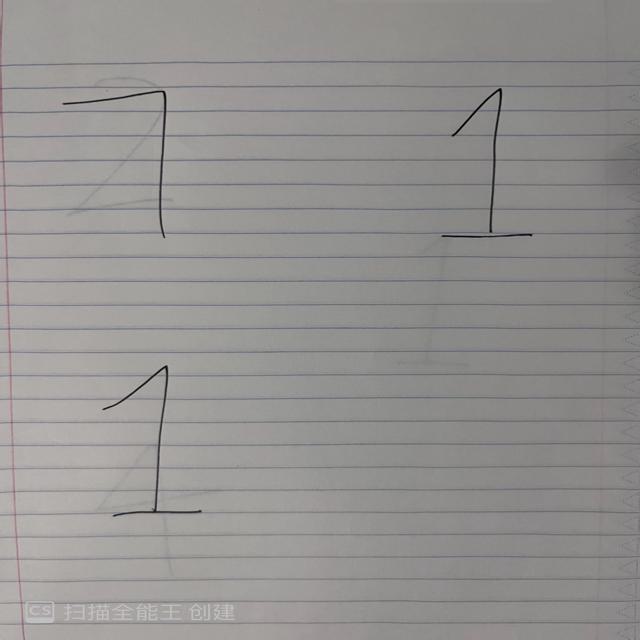 7 1
1
CS 扫描全能王 创建